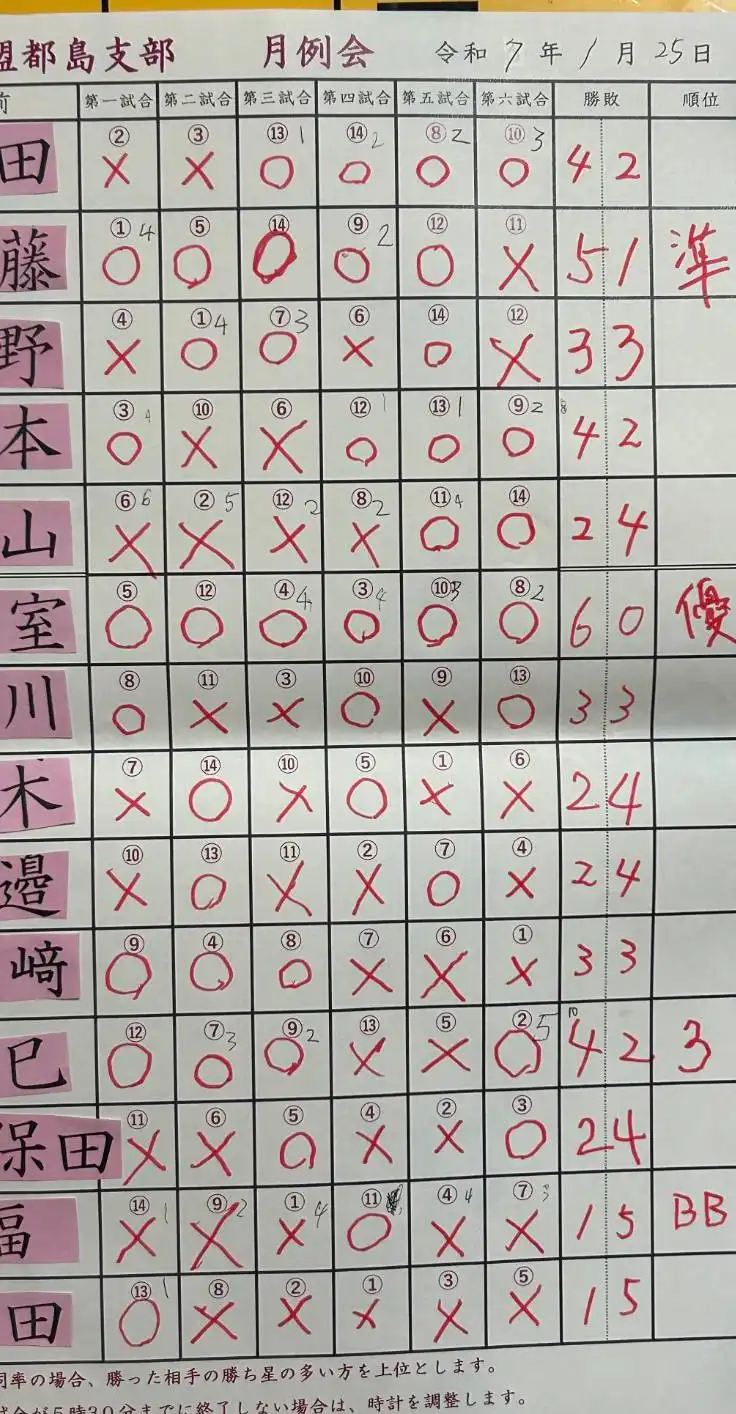 盟都島支部 月例会 令和 7 年 1 月 25 日
前 第一試合 第二試合 第三試合 第四試合 第五試合 第六試合 勝敗 順位
田 ② × ③ × ⑬ 1 ○ ⑭ 2 ○ ⑧ 2 ○ ⑩ 3 ○ 4 2
藤 ① 4 ○ ⑤ ○ ⑭ ○ ⑨ 2 ○ ⑫ ○ ⑪ × 5 1 準
野 ④ × ① 4 ○ ⑦ 3 ○ ⑥ × ⑭ ○ ⑫ × 3 3
本 ③ 4 ○ ⑩ × ⑥ × ⑫ 1 ○ ⑬ 1 ○ ⑨ 2 ○ 8 4 2
山 ⑥ 6 × ② 5 × ⑫ 2 × ⑧ 2 × ⑪ 4 ○ ⑭ ○ 2 4
室 ⑤ ○ ⑫ ○ ④ 4 ○ ③ 4 ○ ⑩ 3 ○ ⑧ 2 ○ 6 0 優
川 ⑧ ○ ⑪ × ③ × ⑩ ○ ⑨ × ⑬ ○ 3 3
木 ⑦ × ⑭ ○ ⑩ × ⑤ ○ ① × ⑥ × 2 4
邉 ⑩ × ⑬ ○ ⑪ × ② × ⑦ ○ ④ × 2 4
﨑 ⑨ ○ ④ ○ ⑧ ○ ⑦ × ⑥ × ① × 3 3
巳 ⑫ ○ ⑦ 3 ○ ⑨ 2 ○ ⑬ × ⑤ × ② 5 ○ 10 4 2 3
保田 ⑪ × ⑥ × ⑤ ○ ④ × ② × ③ ○ 2 4
福 ⑭ 1 × ⑨ 2 × ① 4 × ⑪ ○ ④ 4 × ⑦ 3 × 1 5 BB
田 ⑬ 1 ○ ⑧ × ② × ① × ③ × ⑤ × 1 5
同率の場合、勝った相手の勝ち星の多い方を上位とします。
試合が5時30分までに終了しない場合は、時計を調整します。